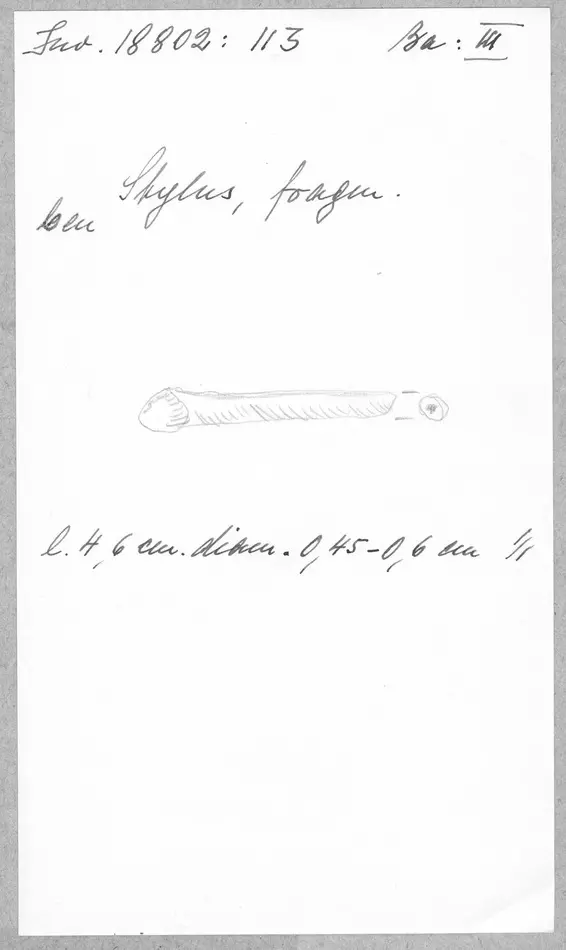 Inv. 18802: 113 Ba: III
Stylus, fragm.
ben
l. 4,6 cm. diam. 0,45-0,6 cm 1/1